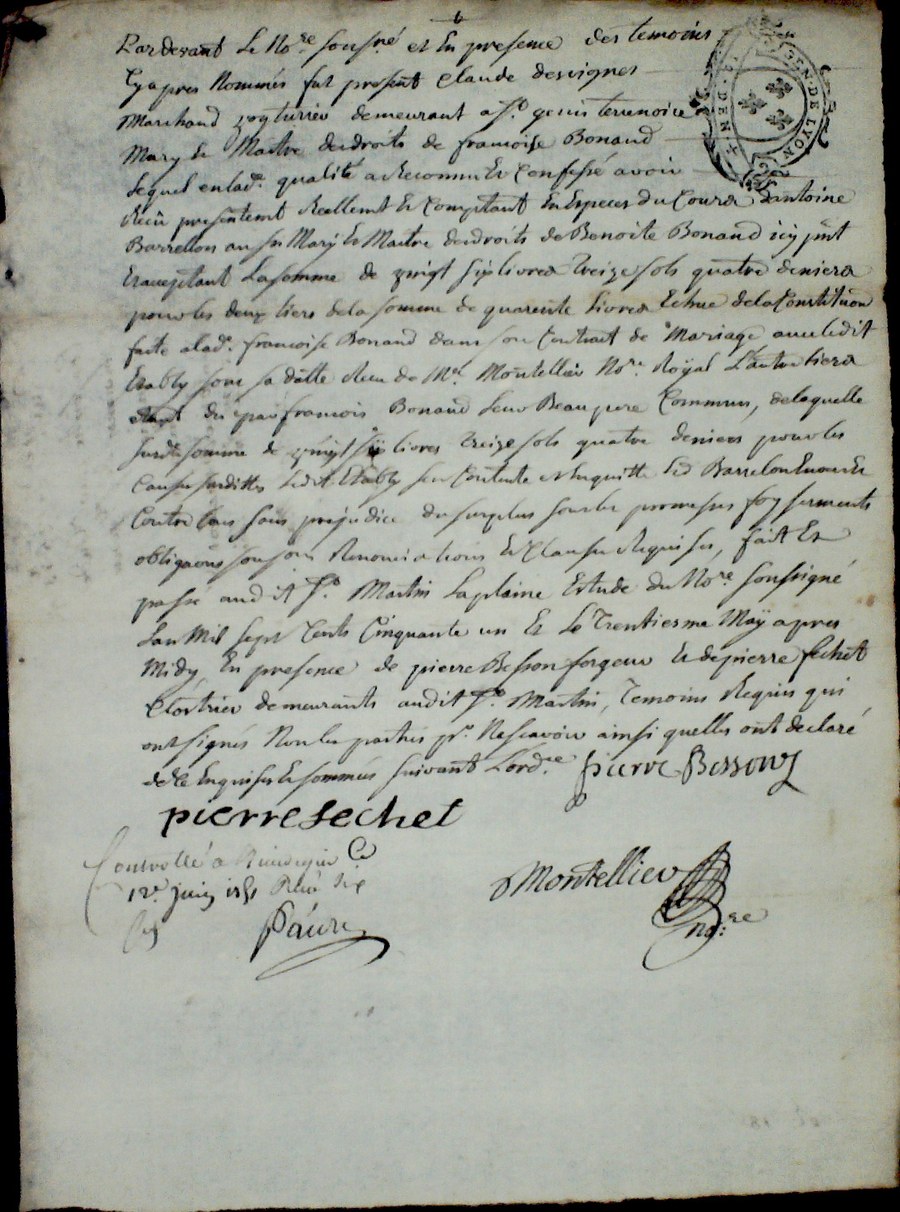 Pardevant Le No.re Sous.né et En presence des temoins
Cyapres Nommés fut present Claude desvignes
GEN · DE · LYON
DEN
Marchand voyturier demeurant a S.t genis terrenoire
Mary Et Maitre desdroits de francoise Bonand
Lequel enlad. qualité a Reconnu Et Confessé avoir
Receu presentemt Reellemt Et Comptant En Especes du Cours dantoine
Barrellon au su Mary Et Maitre desdroits de Benoite Bonand icy pnt
Etacceptant Lasomme de vingt six livres treize sols quatre deniers
pour les deux tiers dela somme de quarente livres Echue dela Constitution
faite alad. francoise Bonand dans son Contrat de Mariage avec ledit
Etably sous sa datte Receu de M.e Montellier No.re Royal L'autre tiers
du par francois Bonand Leur Beaupere Commun, delaquelle
susd. somme de vingt six livres treize sols quatre deniers pour les
Causes susdittes Ledit Etably se Contente Et Enquitte Led Barrelon Envers Et
Contre tous sans prejudice du surplus sous les promesses foy serments
obligaons Renonciations Et Clauses Requises, fait Et
passé audit S.t Martin Laplaine Estude du No.re Soussigné
Lan Mil Sept Cents Cinquante un Et Le Trentiesme May apres
Midy En presence de pierre Besson forgeur Et depierre sechet
Cloutrier demeurants audit S.t Martin, Temoins Requis qui
ont signés Non les parties p.r Nescavoir ainsi quelles ont declaré
de ce Enquises Et sommées suivant L'ord.ce pierre Besson
pierre Sechet
Controllé a Rivedegier Ce
12.e juin 1751 Receu six
Montellier
No.re